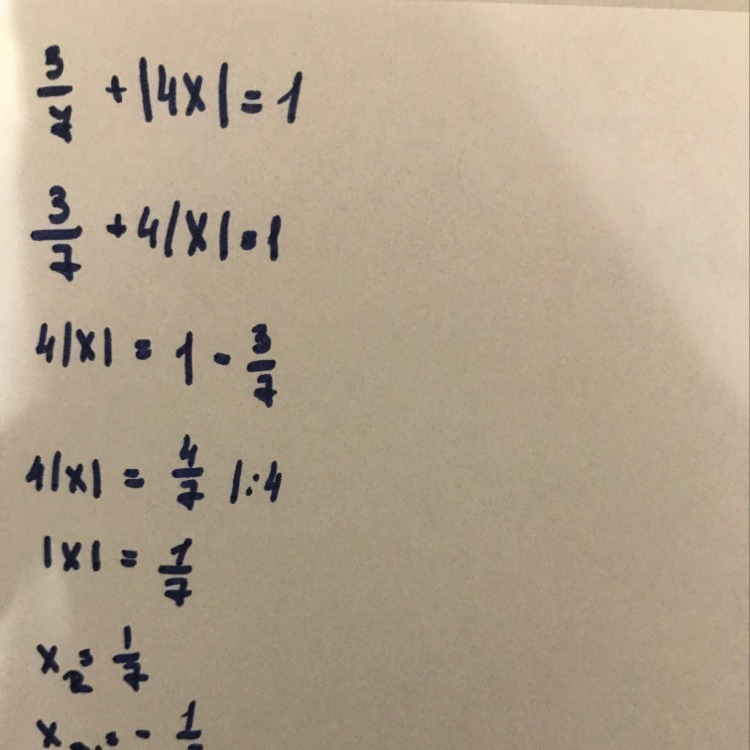 3/7 + |4x| = 1
3/7 + 4|x| = 1
4|x| = 1 - 3/7
4|x| = 4/7 |:4
|x| = 1/7
x₂ = 1/7
x = - 1